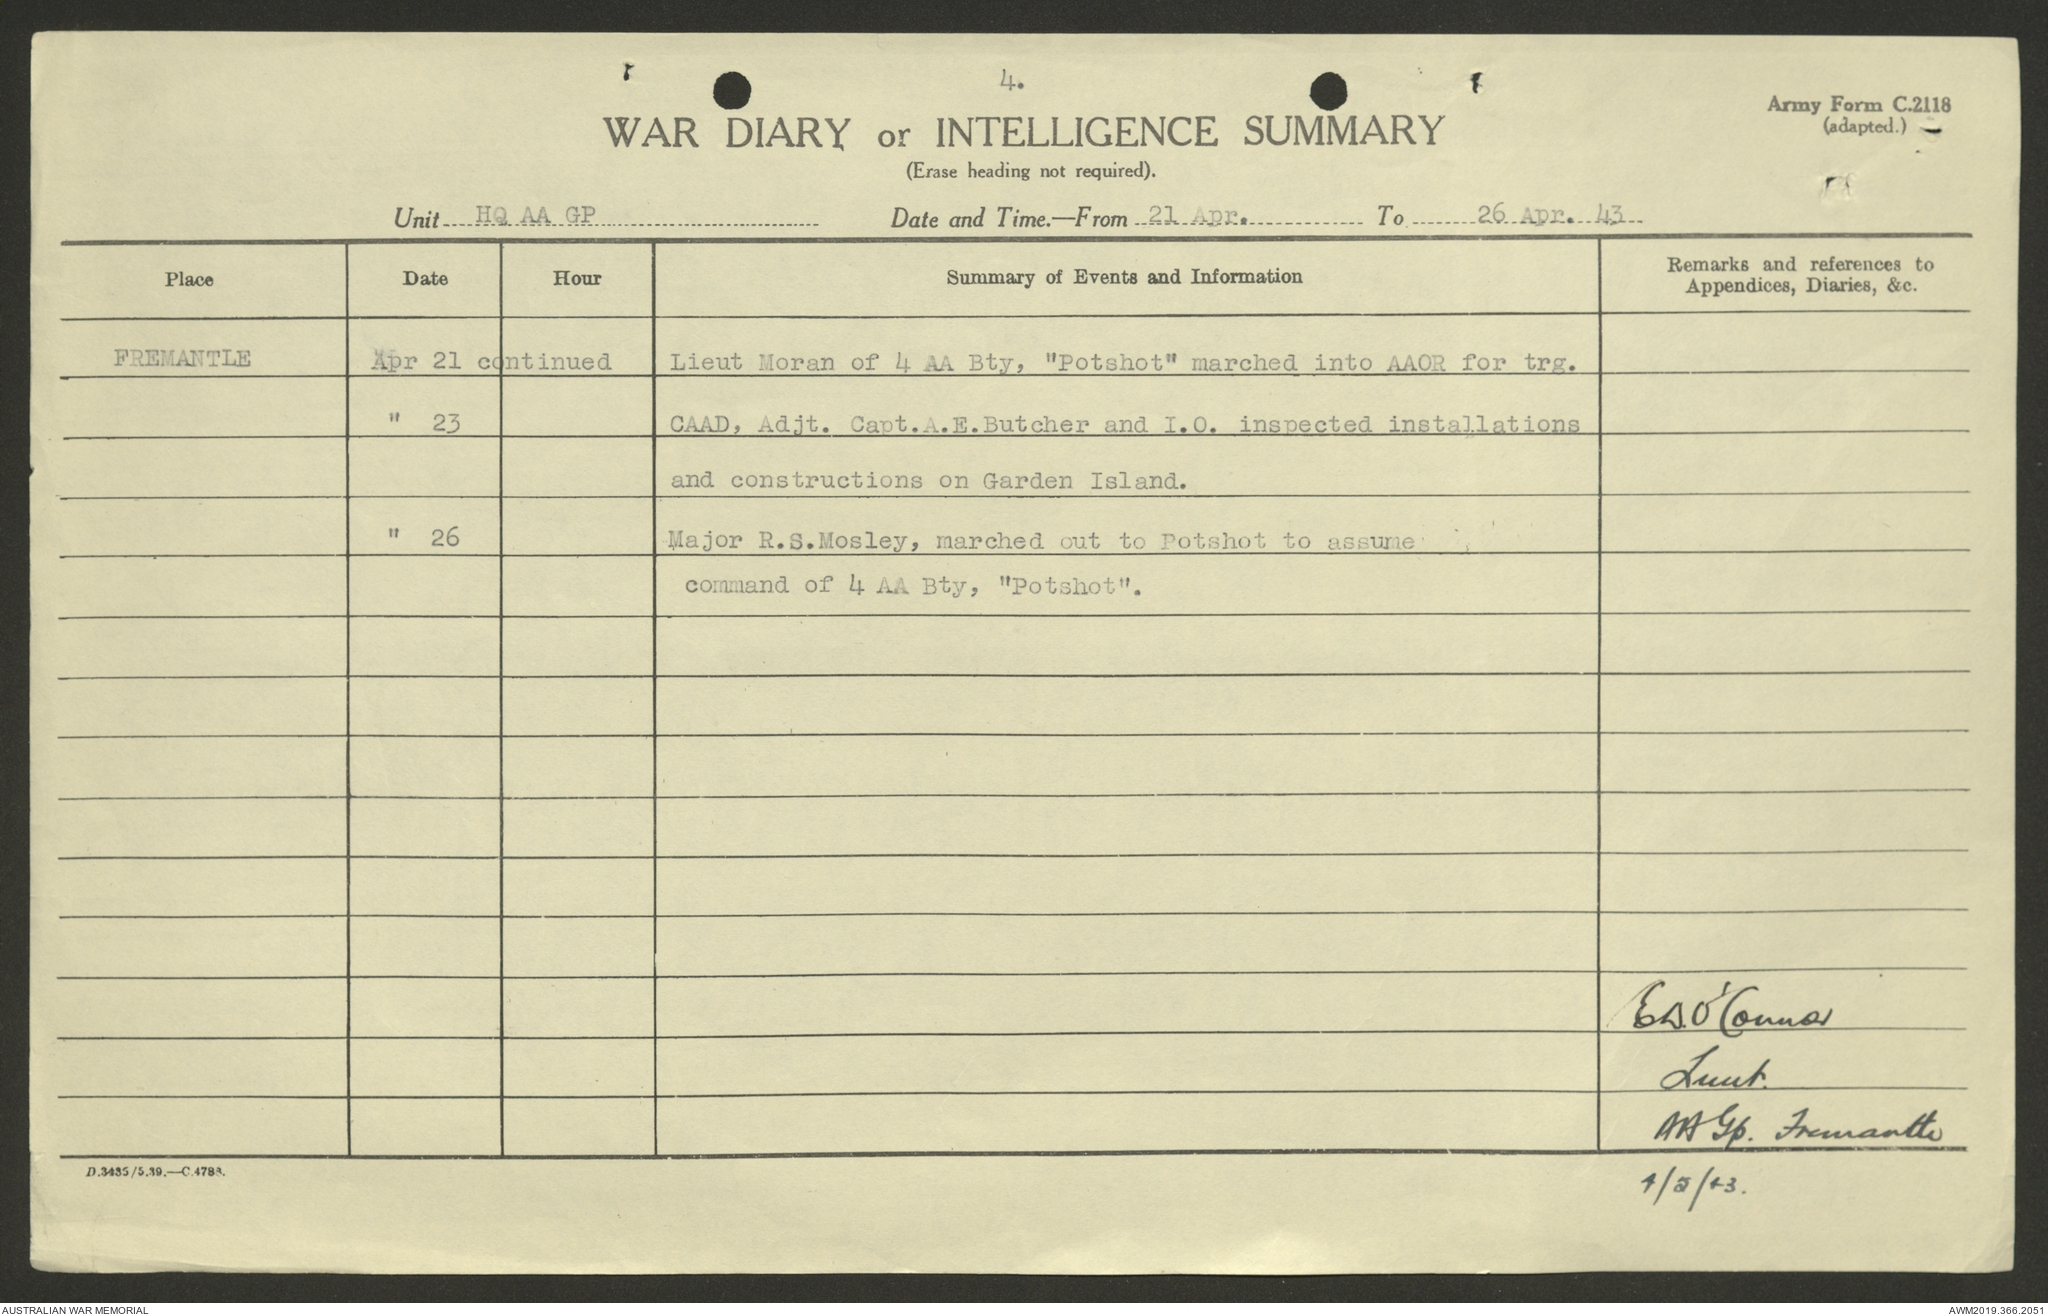 4.
Army Form C.2118
(adapted.)
WAR DIARY or INTELLIGENCE SUMMARY
(Erase heading not required).
Unit HQ AA GP Date and Time.—From 21 Apr. To 26 Apr. 43
Place Date Hour Summary of Events and Information Remarks and references to
Appendices, Diaries, &c.
FREMANTLE Apr 21 continued Lieut Moran of 4 AA Bty, "Potshot" marched into AAOR for trg.
" 23 CAAD, Adjt. Capt.A.E.Butcher and I.O. inspected installations
and constructions on Garden Island.
" 26 Major R.S.Mosley, marched out to Potshot to assume
command of 4 AA Bty, "Potshot".
O'Connor
Lieut.
AA Gp. Fremantle
D.3435/5.39.—C.4788.
4/5/43.
AUSTRALIAN WAR MEMORIAL
AWM2019.366.2051